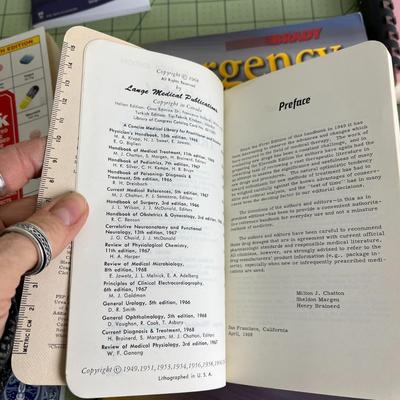 BRADY
rgency
EDITION
Copyright © 1968
All Rights Reserved
by
Lange Medical Publications
Copyright in Canada
Italian Edition:
Turkish Edition:
Library of Congress Catalog Card
A Concise Medical Library for Practitioner and Student
Physician's Handbook, 15th edition, 1968
M. A. Krupp, N. J. Sweet, E. Jawetz,
E. G. Biglieri
Handbook of Medical Treatment, 11th edition, 1968
M. J. Chatton, S. Margen, H. Brainerd
Handbook of Pediatrics, 7th edition, 1967
H. K. Silver, C. H. Kempe, H. B. Bruyn
Handbook of Poisoning: Diagnosis &
Treatment, 5th edition, 1966
R. H. Dreisbach
Current Medical References, 5th edition, 1967
M. J. Chatton, P. J. Sanazaro
Handbook of Surgery, 3rd edition, 1966
J. L. Wilson, J. J. McDonald
Handbook of Obstetrics & Gynecology, 3rd edition,
R. C. Benson
Correlative Neuroanatomy and Functional
Neurology, 13th edition, 1967
J. G. Chusid, J. J. McDonald
Review of Physiological Chemistry,
11th edition, 1967
H. A. Harper
Review of Medical Microbiology,
8th edition, 1968
E. Jawetz, J. L. Melnick, E. A. Adelberg
Principles of Clinical Electrocardiography,
6th edition, 1967
M. J. Goldman
General Urology, 5th edition, 1966
D. R. Smith
General Ophthalmology, 5th edition, 1968
D. Vaughan, R. Cook, T. Asbury
Current Diagnosis & Treatment, 1968
H. Brainerd, S. Margen, M. J. Chatton, Editors
Review of Medical Physiology, 3rd edition, 1967
W. F. Ganong
Copyright © 1949, 1951, 1953, 1954, 1956, 1958,
Lithographed in U. S. A.
METRIC (CM)
Preface
Since the First Edition of this handbook in 1949 it has
The intention of the authors and editors—in this as in
previous editions—has been to provide a convenient authoritative
reference handbook for everyday use and not a minature
The authors and editors have been careful to recommend
those drug dosages that are in agreement with current official
pharmacologic standards and responsible medical literature.
All clinicians, however, are strongly advised to refer to the
drug manufacturers' product information (e.g., package
inserts), especially when new or infrequently prescribed medi-
cations are used.
Milton J. Chatton
Sheldon Margen
Henry Brainerd
San Francisco, California
April, 1968